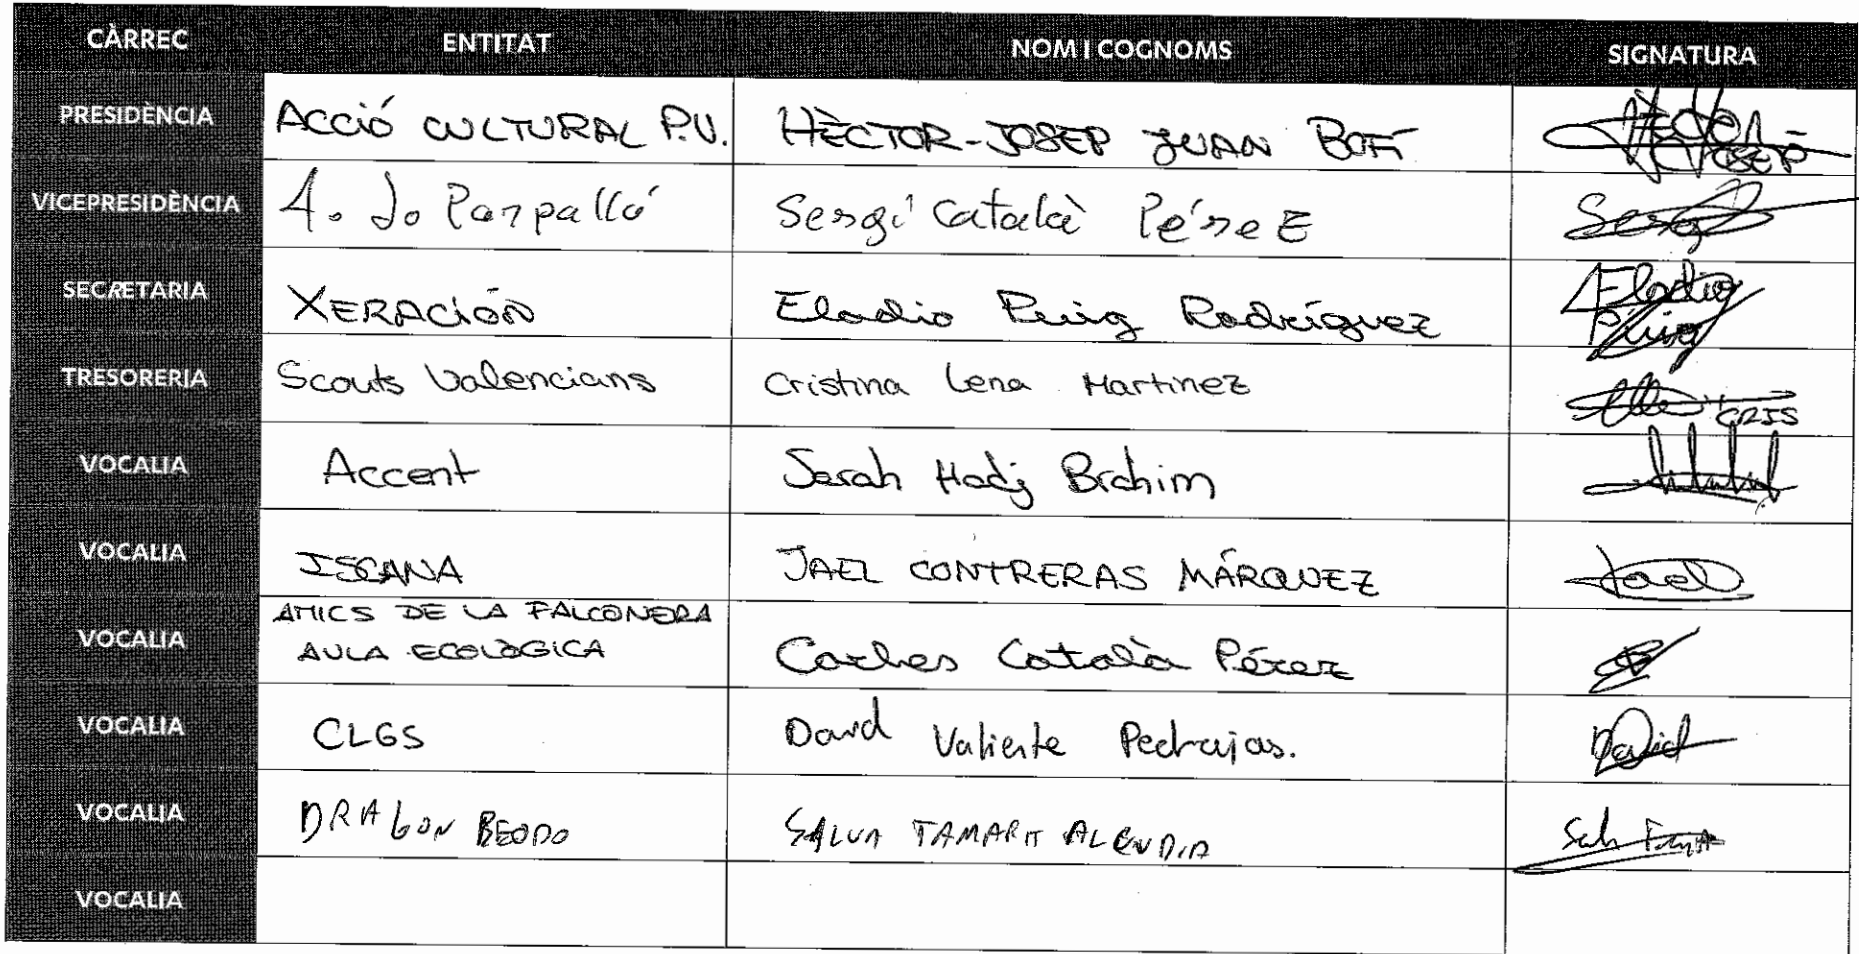 CÀRREC ENTITAT NOM I COGNOMS SIGNATURA
PRESIDÈNCIA ACCIÓ CULTURAL P.V. HÈCTOR-JOSEP JUAN BOFÍ Hèctor Josep
VICEPRESIDÈNCIA A. J. Parpalló Sergi Català Pérez Sergi
SECRETARIA XERACIÓN Elodio Puig Rodríguez Elodio Puig
TRESORERIA Scouts Valencians Cristina Lena Martinez CRIS
VOCALIA Accent Sarah Hadj Brahim
VOCALIA ISCANA JAEL CONTRERAS MÁRQUEZ Jael
VOCALIA AMICS DE LA FALCONERA
AULA ECOLÒGICA Carles Català Pérez
VOCALIA CLGS David Valiente Pedrajas. David
VOCALIA DRAGON BEODO SALVA TAMARIT ALCUDIA
VOCALIA